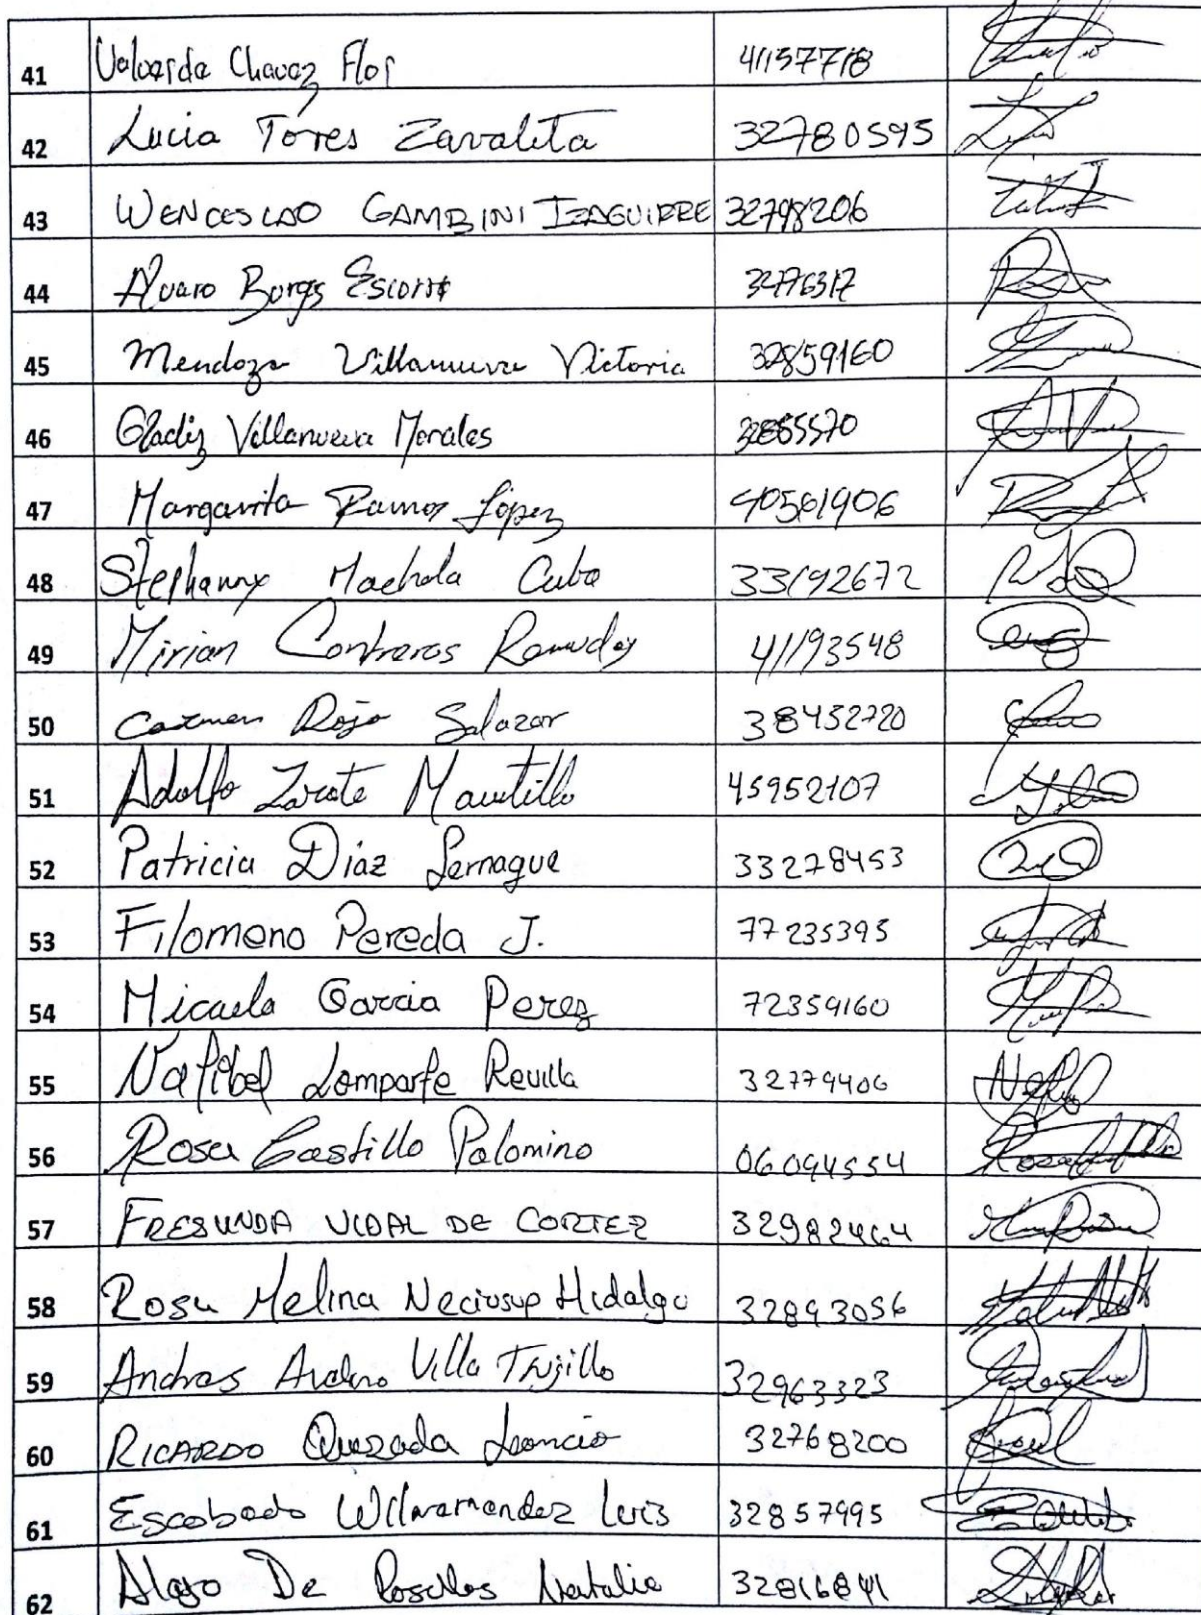 41 Valverde Chavez Flor 41157718
42 Lucia Torres Zavaleta 32780595
43 WENCESLAO GAMBINI IZAGUIRRE 32798206
44 Alvaro Borgs 32776317
45 Mendoza Villanueva Victoria 32859160
46 Gladiz Villanueva Morales 32885570
47 Margarita Ramos López 40561906
48 Stephanny Machola Cuba 33192672
49 Mirian Contreras 41193548
50 Carmen Rojo Salazar 38452720
51 Adolfo Zarate 45952107
52 Patricia Díaz Lernague 33278453
53 Filomeno Pereda J. 77235395
54 Micaela Garcia Perez 72359160
55 Lomparte Revilla 32779406
56 Rosa Castillo Palomino 06094554
57 FRESUNDA VIDAL DE CORTEZ 32982464
58 Rosa Melina Neciosup Hidalgo 32893056
59 Andres Villa Trujillo 32963323
60 RICARDO Quezada Leoncio 32768200
61 Luis 32857995
62 De Rosales Natalia 32816841